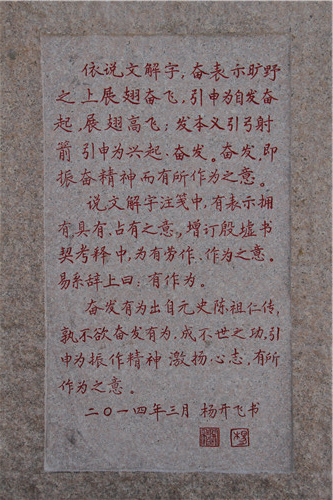 依说文解字,奋表示旷野
之上展翅奋飞,引申为自发奋
起,展翅高飞;发本义引弓射
箭 引申为兴起、奋发。奋发,即
振奋精神而有所作为之意。
说文解字注笺中,有表示拥
有,具有,占有之意,增订殷墟书
契考释中,为有劳作、作为之意。
易系辞上曰:有作为。
奋发有为出自元史陈祖仁传,
孰不欲奋发有为,成不世之功,引
申为振作精神 激扬心志,有所
作为之意。
二〇一四年三月 杨开飞书